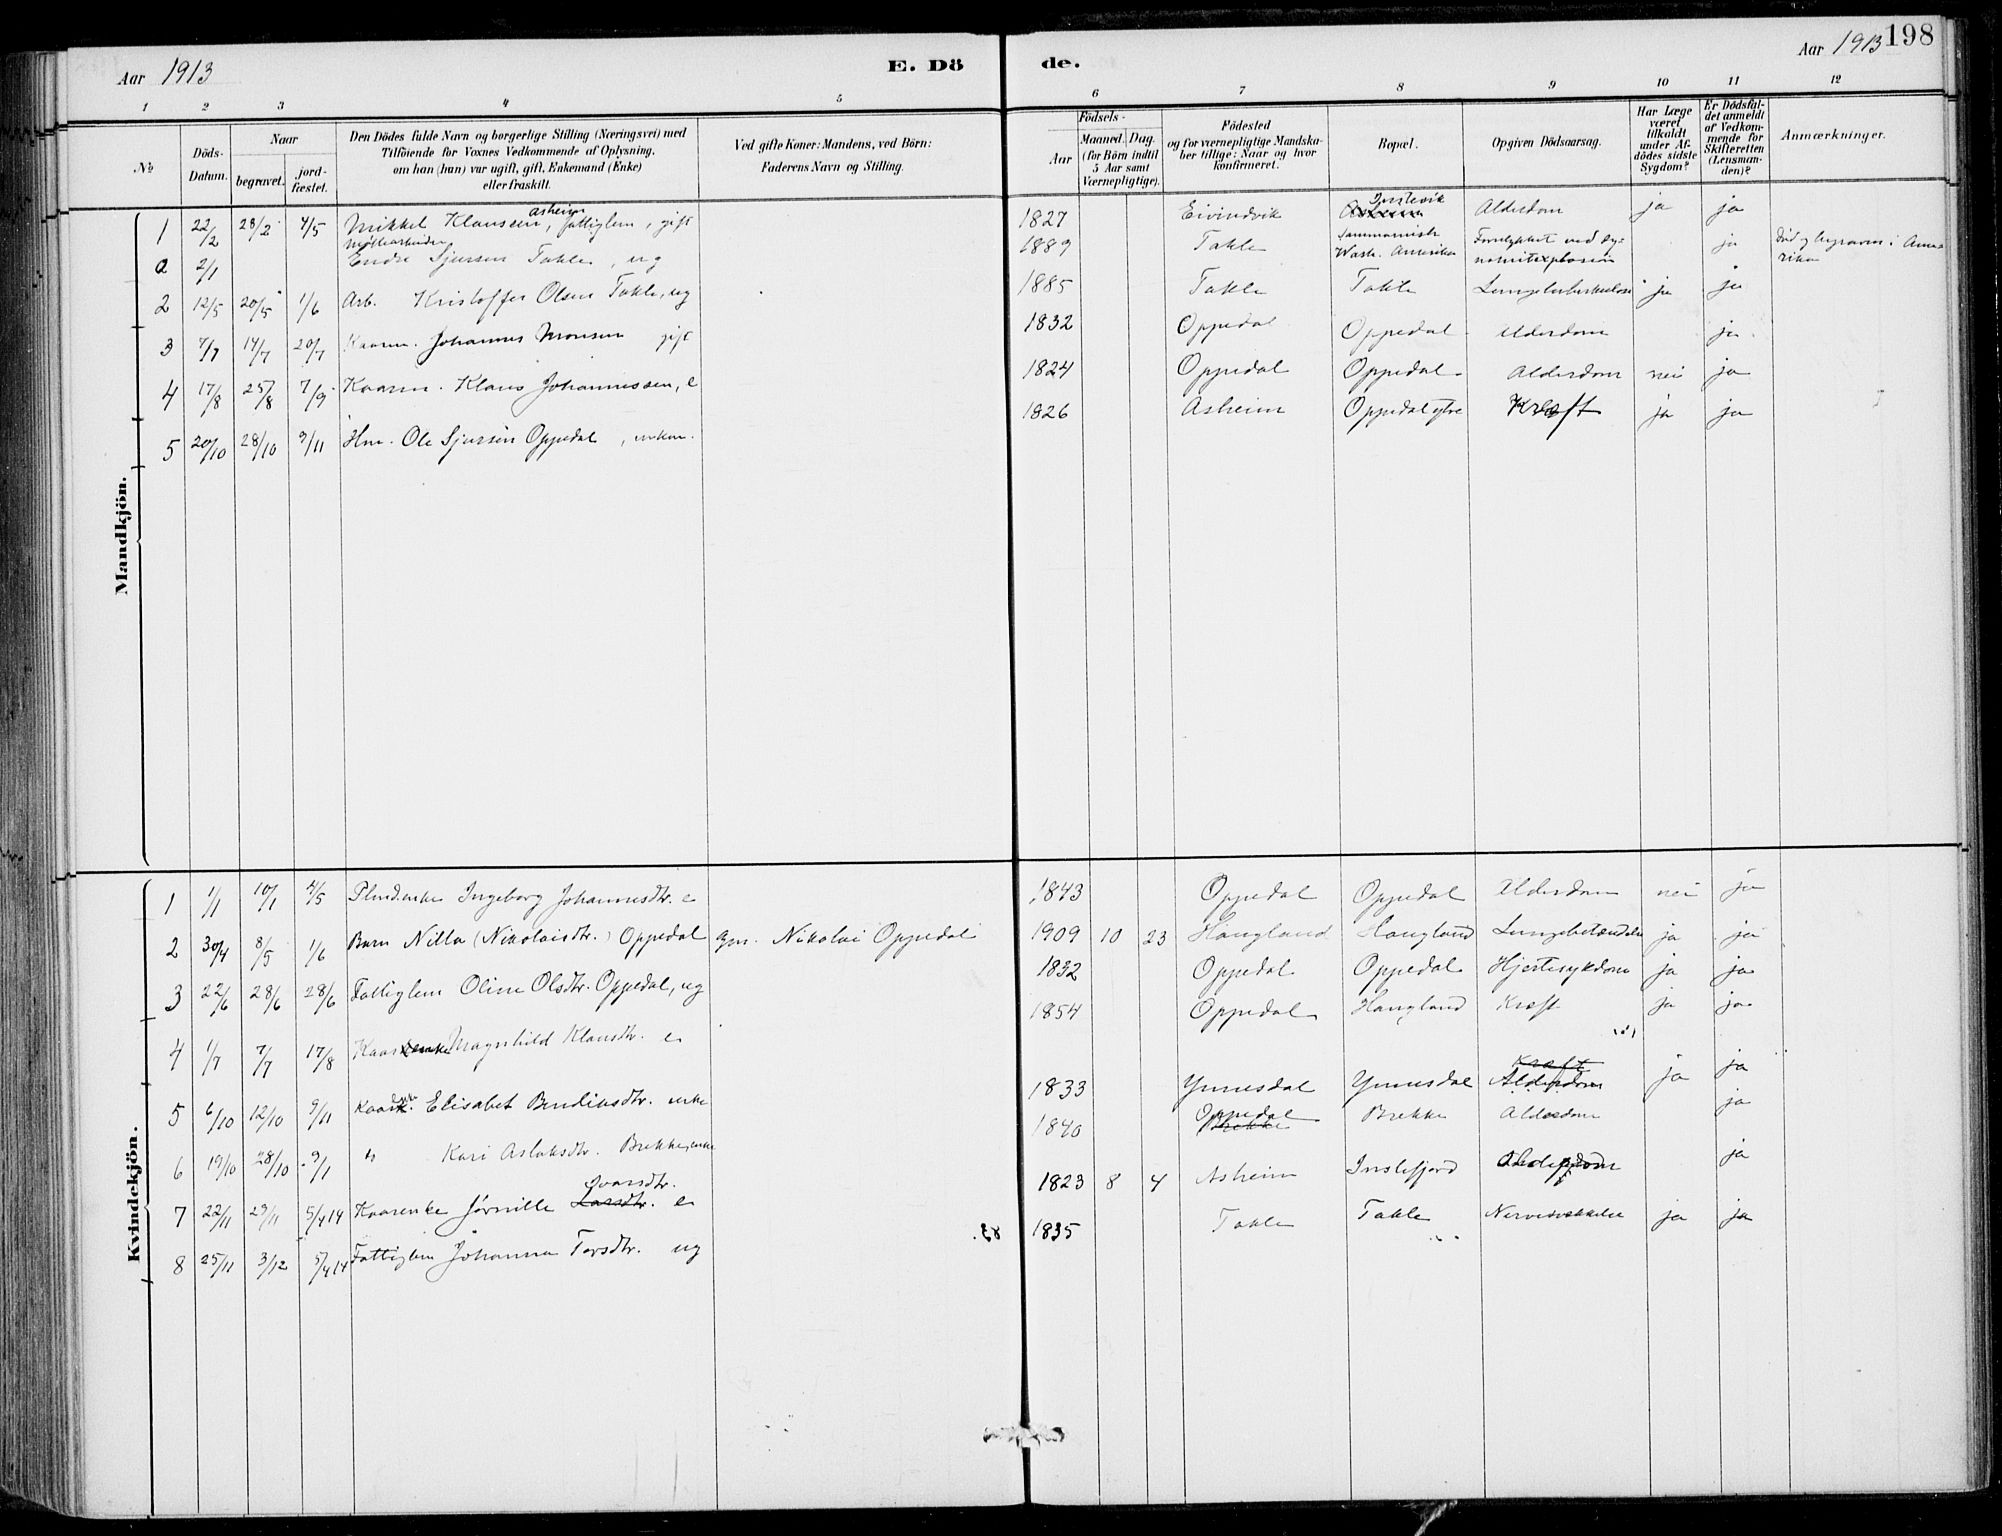 Aar 1913 E. Dö de. Aar 1913 198
1 2 3 4 5 6 7 8 9 10 11 12
№ Döds-Datum. Naar begravet. jord-fæstet. Den Dödes fulde Navn og borgerlige Stilling (Næringsvei) med Tilföiende for Voxnes Vedkommende af Oplysning, om han (hun) var ugift, gift, Enkemand (Enke) eller fraskilt. Ved gifte Koner: Mandens, ved Börn: Faderens Navn og Stilling. Födsels- Aar Maaned. Dag. (for Börn indtil 5 Aar samt Værnepligtige). Födested og for værnepligtige Mandskaber tillige: Naar og hvor konfirmeret. Bopæl. Opgiven Dödsaarsag. Har Læge været tilkaldt under Afdödes sidste Sygdom? Er Dödsfaldet anmeldt af Vedkommende for Skifteretten (Lensmanden)? Anmærkninger.
Mandkjön.
1 22/2 28/2 4/5 Mikkel Klausen Asheim, fattiglem, gift 1827 Eivindvik Instevik Alderdom ja ja
a 2/1 Endre Sjursen Takle, ug 1889 Takle Wash. Amerika Forulykket ved dynamitexplosion ja Död og begraven i Amerika
2 12/5 20/5 1/6 Arb. Kristoffer Olsen Takle, ug 1885 Takle Takle Lungetuberkulose ja ja
3 7/7 14/7 20/7 Kaarm. Johannes Monsen gift 1832 Oppedal Oppedal Alderdom ja
4 17/8 25/8 7/9 Kaarm. Klaus Johannessen, e 1824 Oppedal Oppedal Alderdom nei ja
5 20/10 28/10 9/11 Hm. Ole Sjursen Oppedal, enkem. 1826 Asheim Oppedal ytre Kræft ja ja
Kvindekjön.
1 1/1 10/1 4/5 Ingeborg Johannesdtr. e 1843 Oppedal Oppedal Alderdom nei ja
2 30/4 8/5 1/6 Barn Nilla (Nikolaisdtr.) Oppedal Gm. Nikolai Oppedal 1909 10 23 Haugland Haugland Lungebetændelse ja ja
3 22/6 28/6 28/6 Fattiglem Oline Olsdtr. Oppedal, ug 1832 Oppedal Oppedal Hjertesykdom ja ja
4 1/7 7/7 17/8 Kaarenke Magnhild Klausdtr. e 1854 Oppedal Haugland Kræft ja ja
5 6/10 12/10 9/11 Elisabet Bendiksdtr. enke 1833 Ynnesdal Ynnesdal Kræft Alderdom ja ja
6 19/10 28/10 9/1 " Kari Aslaksdtr. Brekke, enke 1840 Oppedal Brekke Brekke Alderdom ja
7 22/11 29/11 5/4 14 Kaarenke Jørnille Larsdtr. Ivarsdtr. e 1823 8 4 Asheim Instefjord Alderdom ja
8 25/11 3/12 5/4 14 Fattiglem Johanna Torsdtr. ug 1835 Takle Takle Nervesvekkelse ja ja